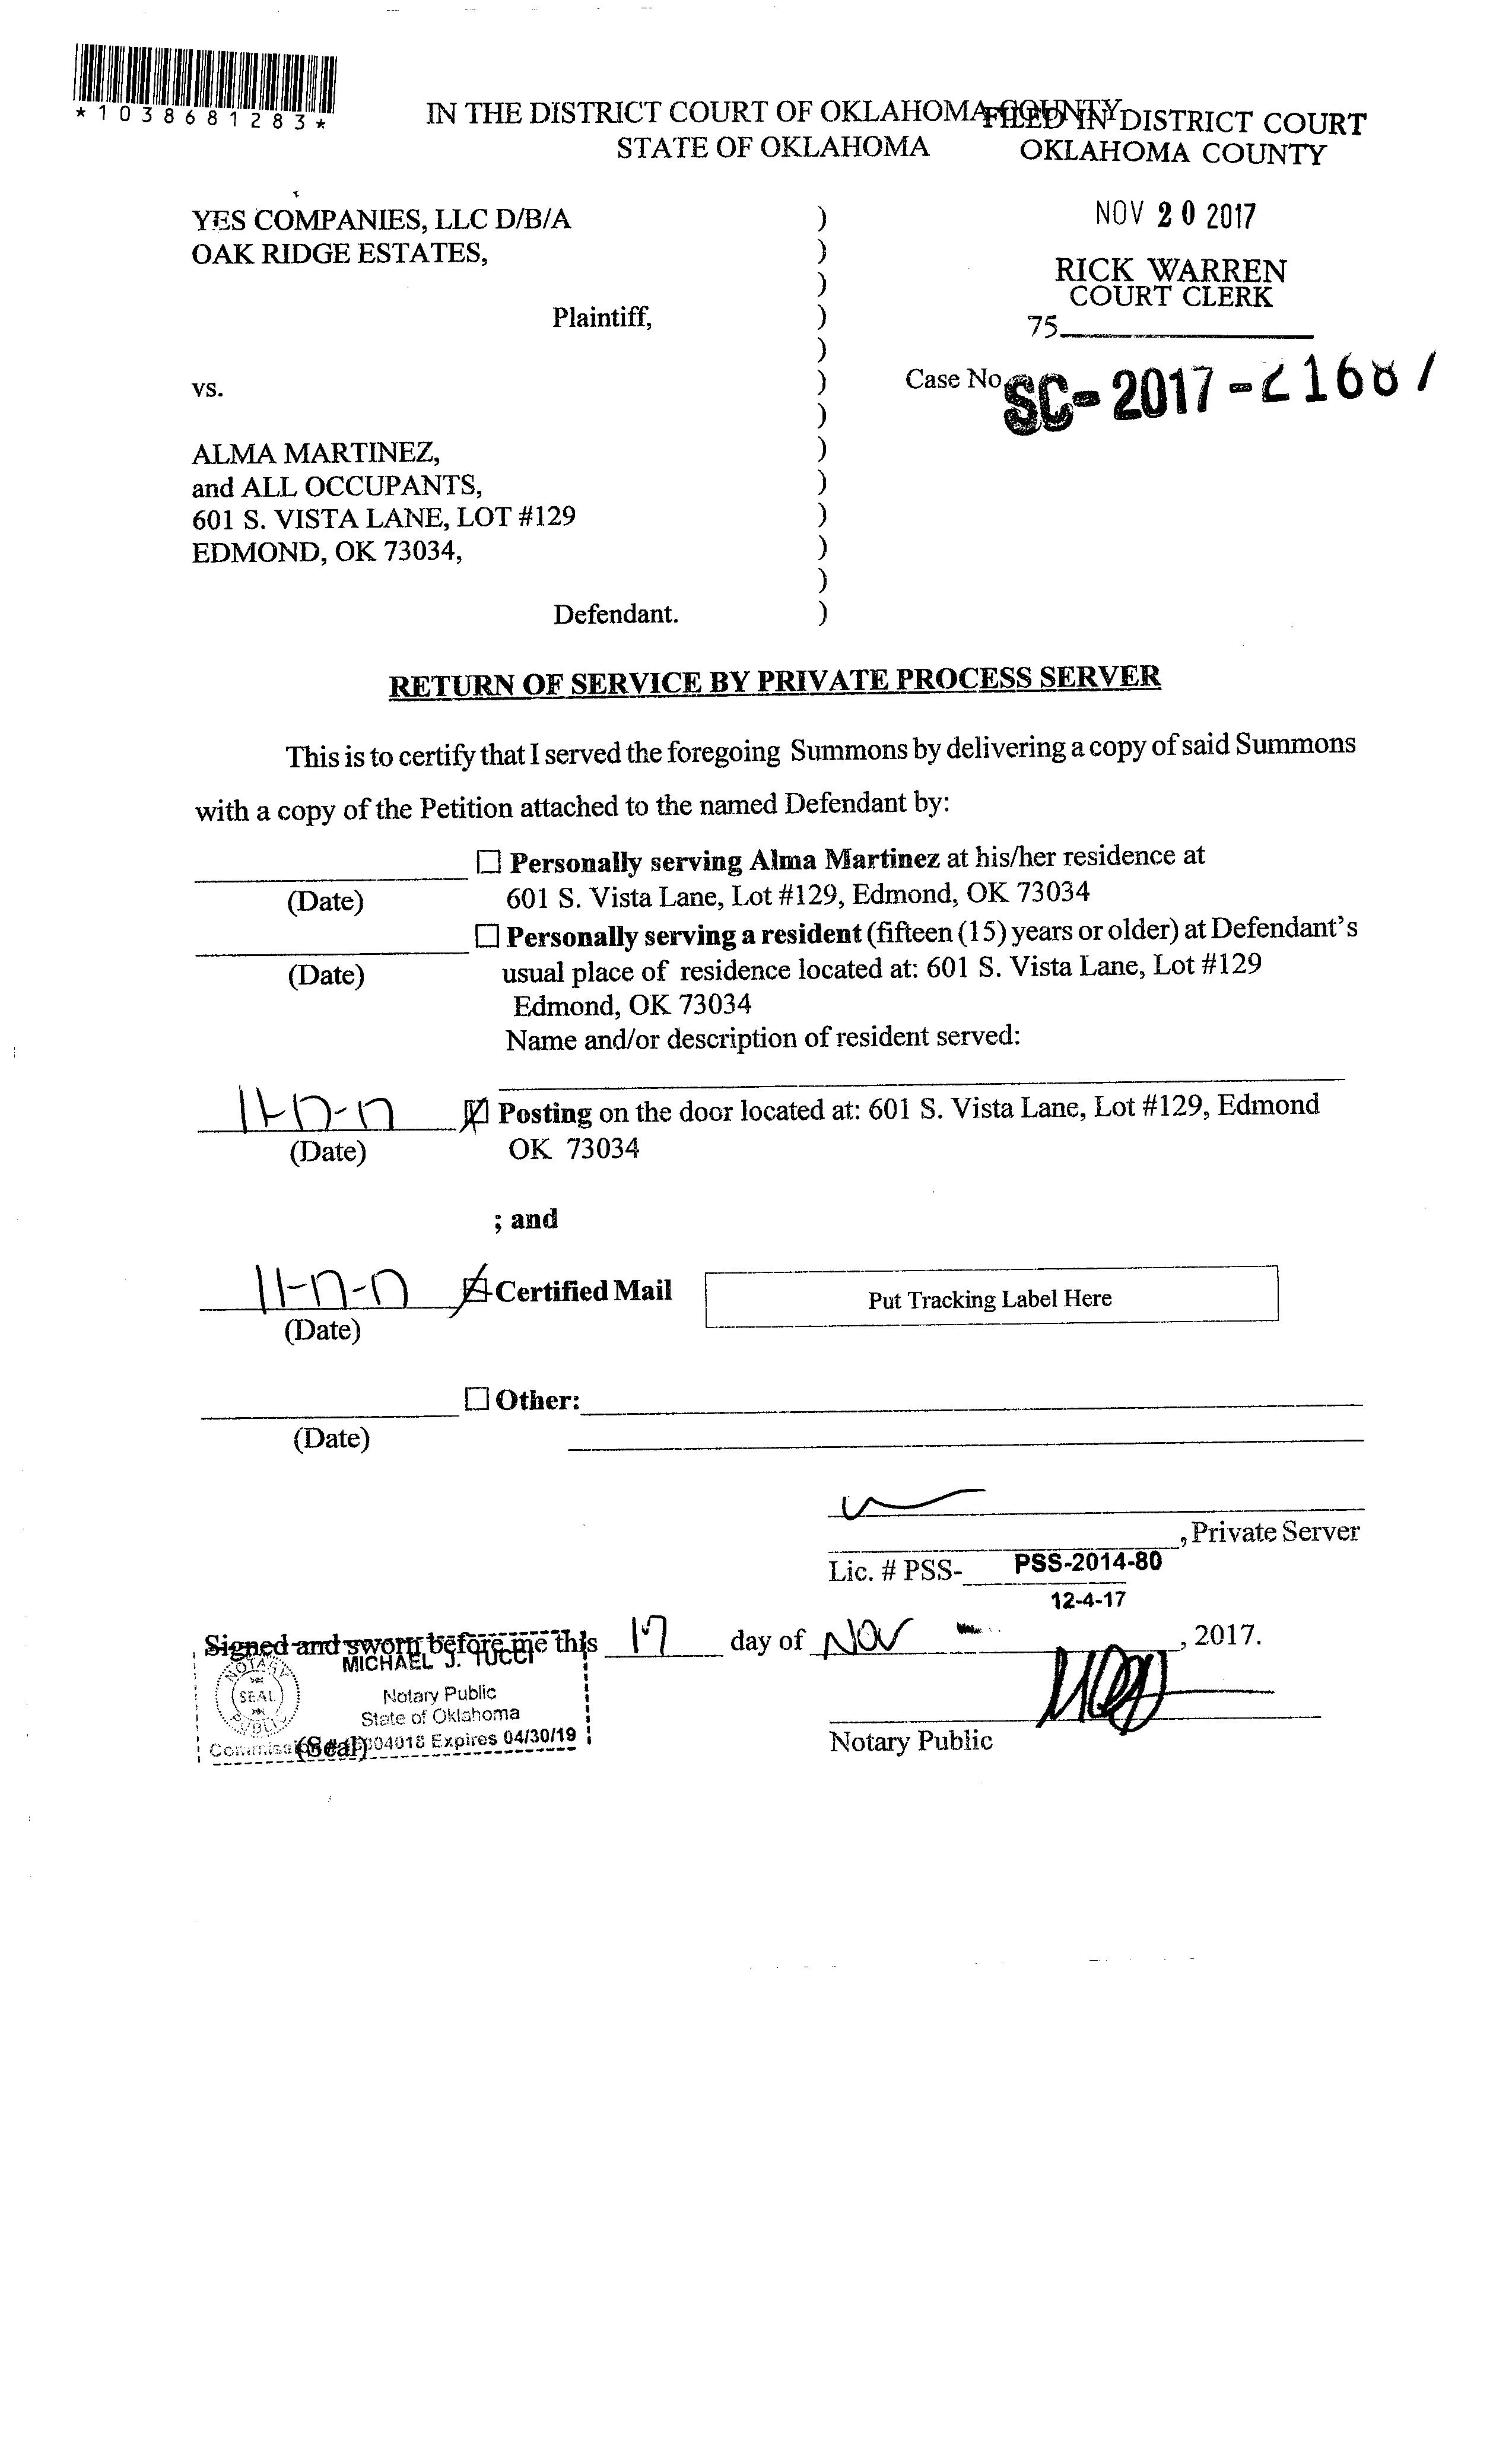 *1038681283*
IN THE DISTRICT COURT OF OKLAHOMA COUNTY
STATE OF OKLAHOMA
FILED IN DISTRICT COURT
OKLAHOMA COUNTY
NOV 20 2017
RICK WARREN
COURT CLERK
75
YES COMPANIES, LLC D/B/A )
OAK RIDGE ESTATES, )
)
Plaintiff, )
)
vs. )
Case No. SC-2017-21687
)
ALMA MARTINEZ, )
and ALL OCCUPANTS, )
601 S. VISTA LANE, LOT #129 )
EDMOND, OK 73034, )
)
Defendant. )
RETURN OF SERVICE BY PRIVATE PROCESS SERVER
This is to certify that I served the foregoing Summons by delivering a copy of said Summons
with a copy of the Petition attached to the named Defendant by:
☐ Personally serving Alma Martinez at his/her residence at
(Date) 601 S. Vista Lane, Lot #129, Edmond, OK 73034
☐ Personally serving a resident (fifteen (15) years or older) at Defendant's
(Date) usual place of residence located at: 601 S. Vista Lane, Lot #129
Edmond, OK 73034
Name and/or description of resident served:
11-17-17 ☑ Posting on the door located at: 601 S. Vista Lane, Lot #129, Edmond
(Date) OK 73034
; and
11-17-17 ☑ Certified Mail Put Tracking Label Here
(Date)
☐ Other:
(Date)
, Private Server
Lic. # PSS- PSS-2014-80
12-4-17
Signed and sworn before me this 17 day of Nov , 2017.
MICHAEL J. TUCCI
NOTARY PUBLIC SEAL
Notary Public
State of Oklahoma
(Seal) 04018 Expires 04/30/19
Notary Public